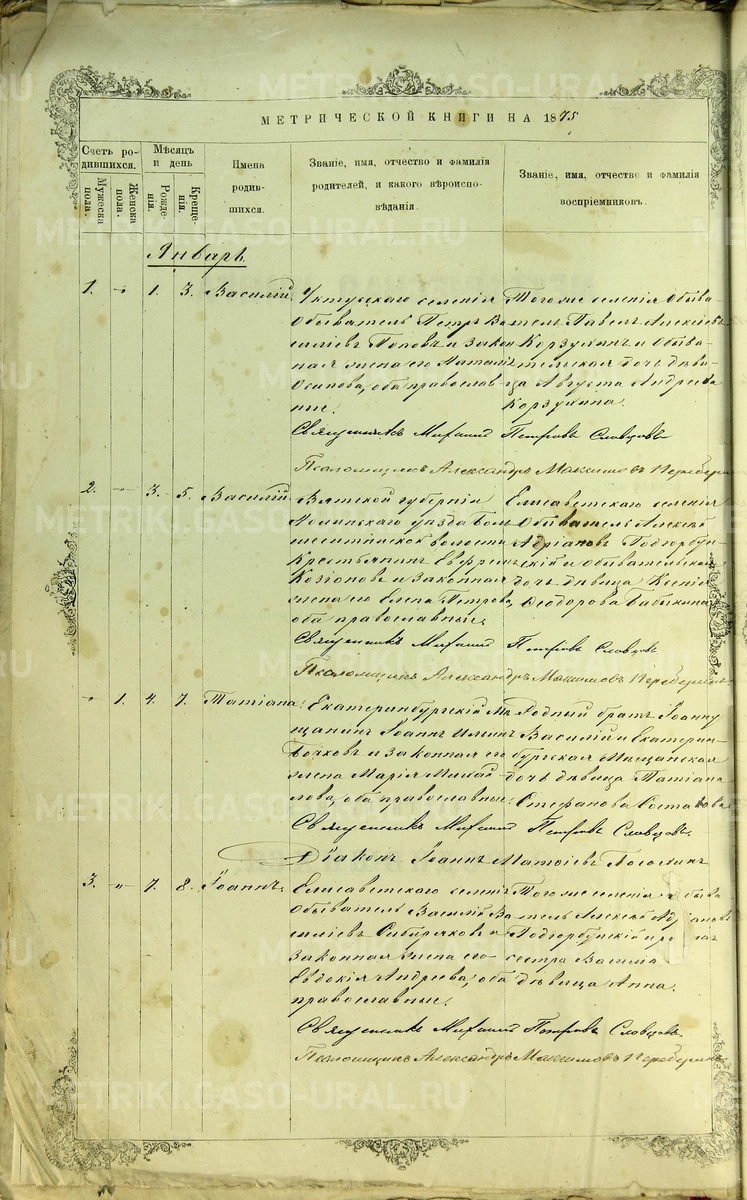 МЕТРИЧЕСКОЙ КНИГИ НА 1875
Счетъ ро-
дившихся.
Мужеска пола.
Женска пола.
Мѣсяцъ
и день
Рожде-
нія.
Креще-
нія.
Имена
родив-
шихся.
Званіе, имя, отчество и фамилія
родителей, и какого вѣроиспо-
вѣданія.
Званіе, имя, отчество и фамилія
воспріемниковъ.
Январь.
1. " 1. 3. Василій.
Уктусскаго селенія
Обыватель Петръ Ва
силіевъ Поповъ и закон
ная жена его Наталія
Осипова, оба православ
ные.
Того же селенія Обыва
тель Павелъ Алексѣевъ
Корзухинъ и Обыва
тельская дочь дѣви
ца Августа Андреева
Корзухина.
Священникъ Михаилъ Петровъ Словцовъ
Псаломщикъ Александръ Максимовъ
2. " 3. 5. Василій.
Вятской губерніи
Нолинскаго уѣзда
волости
Крестьянинъ Евфремъ
Козіоновъ и законная
жена его Елена Петрова,
оба православные.
Елисаветскаго селенія
Обыватель Алексѣй
Адріановъ Подкорбун
скій и обывательская
дочь дѣвица Ксенія
Ѳеодорова Бабкина
Священникъ Михаилъ Петровъ Словцовъ
Псаломщикъ Александръ Максимовъ
" 1. 4. 7. Татіана.
Екатеринбургскій Мѣ
щанинъ Іоаннъ Ильинъ
Бочковъ и законная его
жена Марія Михай
лова, оба православные.
Родный братъ Іоанну
Василій и Екатерин
бургская Мѣщанская
дочь дѣвица Татіана
Стефанова
Священникъ Михаилъ Петровъ Словцовъ.
Діаконъ Іоаннъ Матѳіевъ
3. " 7. 8. Іоаннъ.
Елисаветскаго селенія
Обыватель Василій Ва
силіевъ Сибиряковъ и
законная жена его
Евдокія Андреева, оба
православные.
Того же селенія обыва
тель Алексѣй Адріановъ
Подкорбунскій и родная
сестра Василія
дѣвица Анна.
Священникъ Михаилъ Петровъ Словцовъ
Псаломщикъ Александръ Максимовъ
METRIKI.GASO-URAL.RU